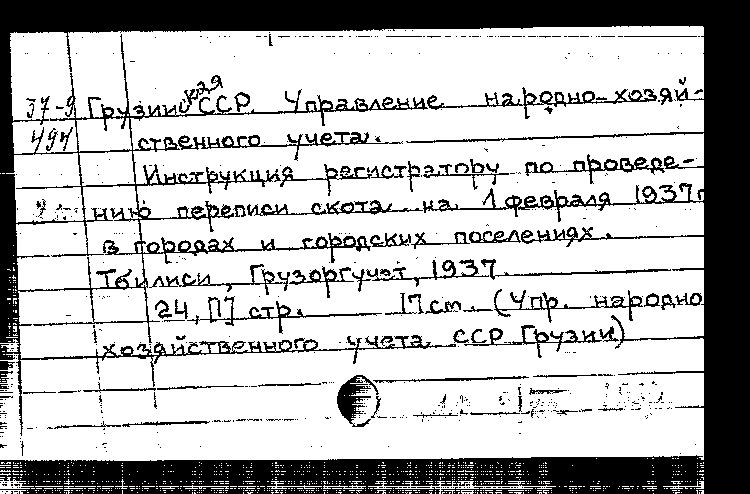 37-9 Грузин ская ССР. Управление народно-хозяй-
494 ственного учета.
Инструкция регистратору по проведе-
нию переписи скота на 1 февраля 1937г
в городах и городских поселениях.
Тбилиси, Грузоргучет, 1937.
24, [1] стр. 17 см. (Упр. народно
хозяйственного учета ССР Грузии)